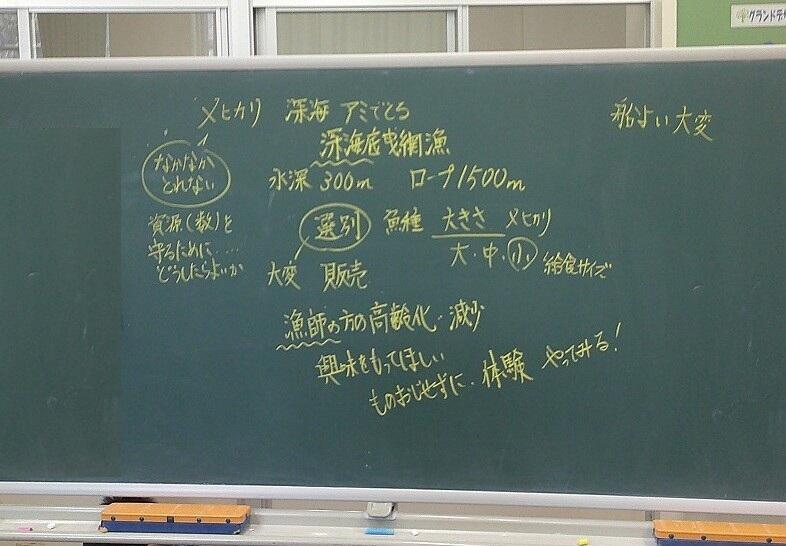 メヒカリ 深海 アミでとる
深海底曳網漁
水深 300m ロープ1500m
船よい大変
なかなか
とれない
資源(数)を
守るために....
どうしたらよいか
選別 魚種 大きさ メヒカリ
大・中・小 給食サイズ
大変 販売
漁師の方の高齢化・減少
興味をもってほしい
ものおじせずに・体験 やってみる!
グランドデ